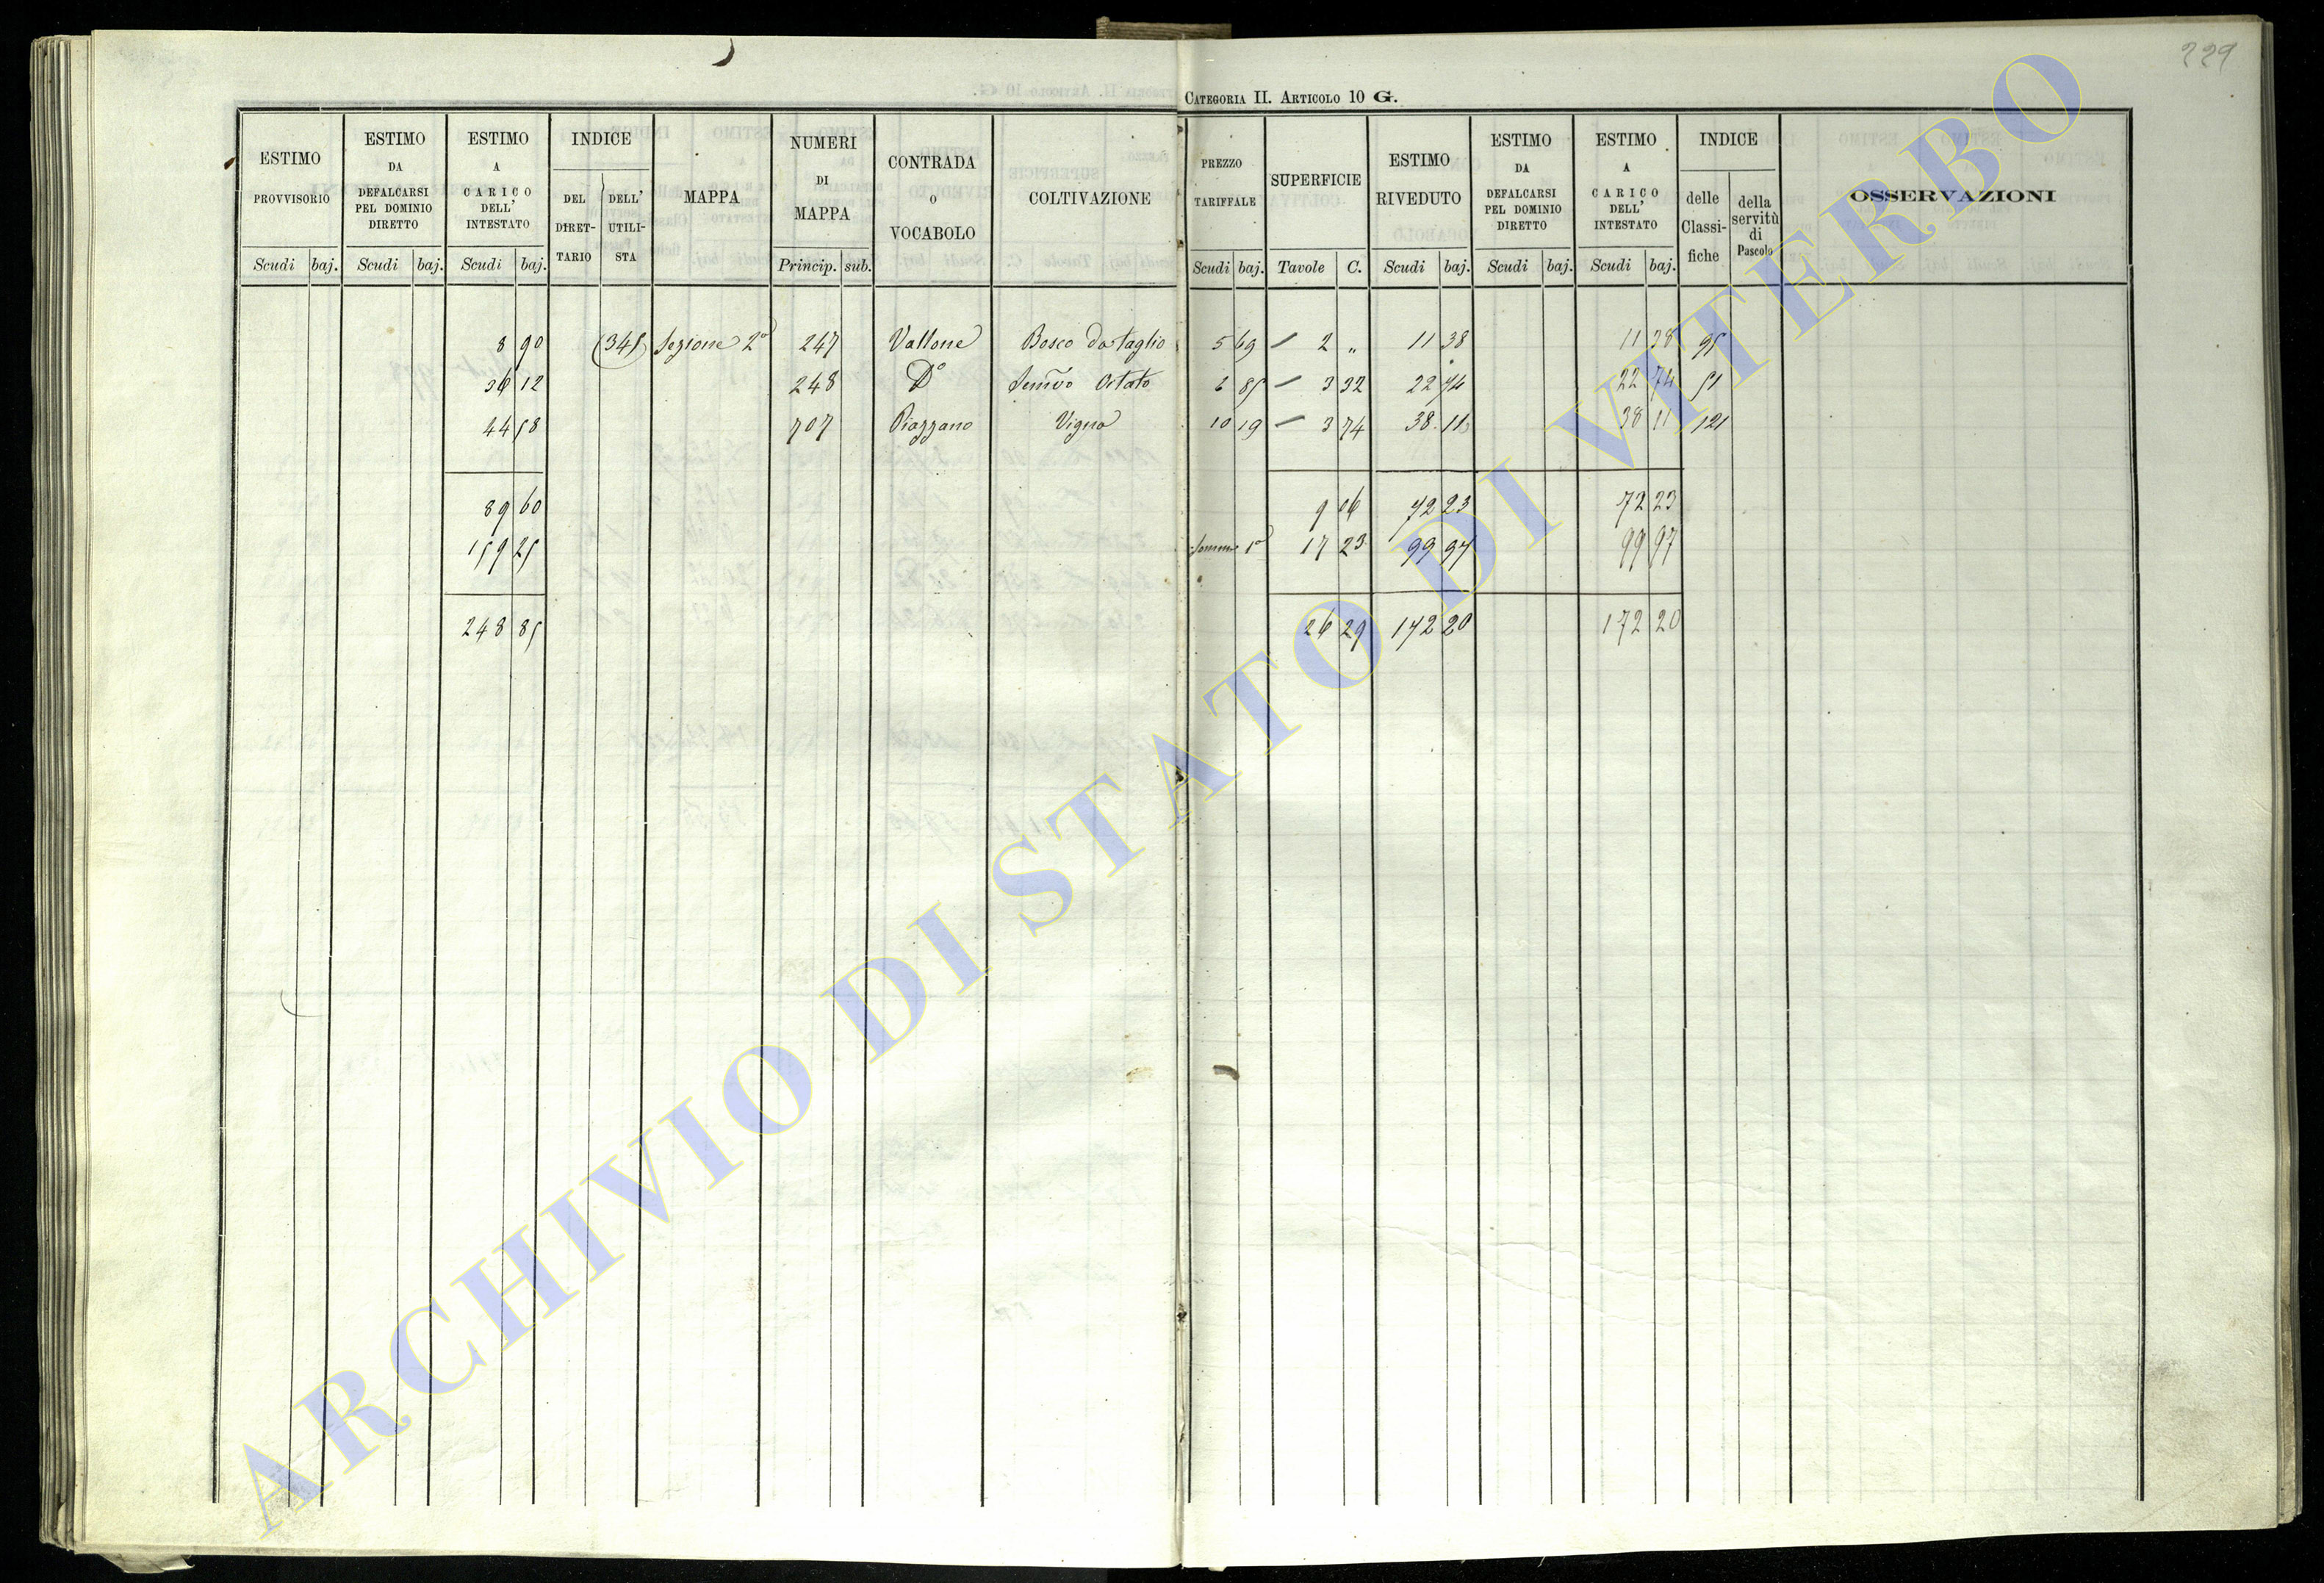 229
CATEGORIA II. ARTICOLO 10 G.
ESTIMO PROVVISORIO Scudi baj.
ESTIMO DA DEFALCARSI PEL DOMINIO DIRETTO Scudi baj.
ESTIMO A CARICO DELL' INTESTATO Scudi baj.
INDICE DEL DIRET-TARIO DELL' UTILI-STA
MAPPA
NUMERI DI MAPPA Princip. sub.
CONTRADA O VOCABOLO
COLTIVAZIONE
PREZZO TARIFFALE Scudi baj.
SUPERFICIE Tavole C.
ESTIMO RIVEDUTO Scudi baj.
ESTIMO DA DEFALCARSI PEL DOMINIO DIRETTO Scudi baj.
ESTIMO A CARICO DELL' INTESTATO Scudi baj.
INDICE delle Classi-fiche della servitù di Pascolo
OSSERVAZIONI
8 90 (345) Sezione 2a 247 Vallone Bosco da taglio 5 69 – 2 „ 11 38 11 38 95
36 12 248 Do Semvo Ortato 6 85 – 3 32 22 74 22 74 51
44 58 707 Piazzano Vigna 10 19 – 3 74 38 11 38 11 121
89 60 9 06 72 23 72 23
159 25 Somma 1a 17 23 99 97 99 97
248 85 26 29 172 20 172 20
ARCHIVIO DI STATO DI VITERBO